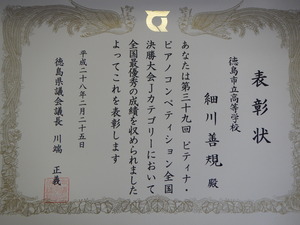 表彰状
徳島市立高等学校
細川善規殿
あなたは第三十九回ピティナ・
ピアノコンペティション全国
決勝大会Jカテゴリーにおいて
全国最優秀の成績を収められました
よってこれを表彰します
平成二十八年二月二十五日
徳島県議会議長 川端正義